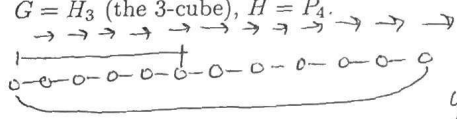 G = H₃ (the 3-cube), H = P₄.